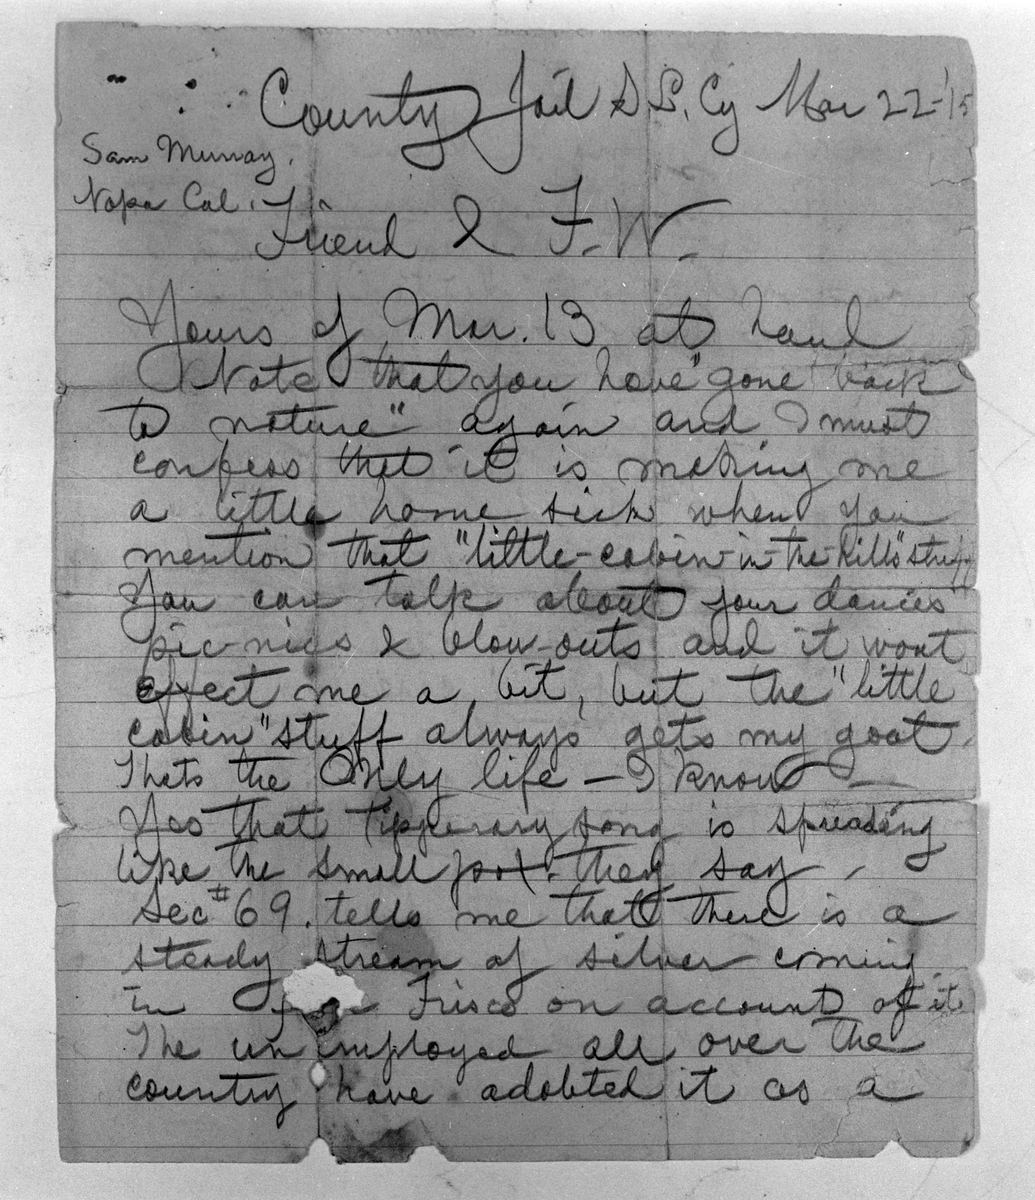 County Jail S. L. Cy Mar 22-'15
Sam Murray,
Napa Cal.
Friend & F. W.
Yours of Mar. 13 at hand
Note that you have "gone back
to nature" again and I must
confess that it is making me
a little home sick when you
mention that "little-cabin-in-the-hills" stuff
You can talk about your dances
pic-nics & blow-outs and it wont
effect me a bit, but the "little
cabin" stuff always gets my goat.
Thats the Only life — I know —
Yes that tipperary song is spreading
like the small pox they say.
Sec #69. tells me that there is a
steady stream of silver coming
in from Frisco on account of it.
The unemployed all over the
country have adobted it as a